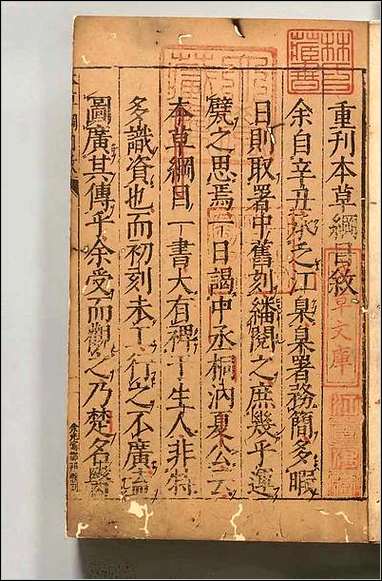 重刊本草綱目敘
余自辛丑承之江臬臬署務簡多暇
日則取署中舊刻繙閱之庶幾乎運
甓之思焉一日謁中丞桐汭夏公云
本草綱目一書大有裨于生人非特
多識資也而初刻未工行之不廣盍
圖廣其傳乎余受而觀之乃楚名醫